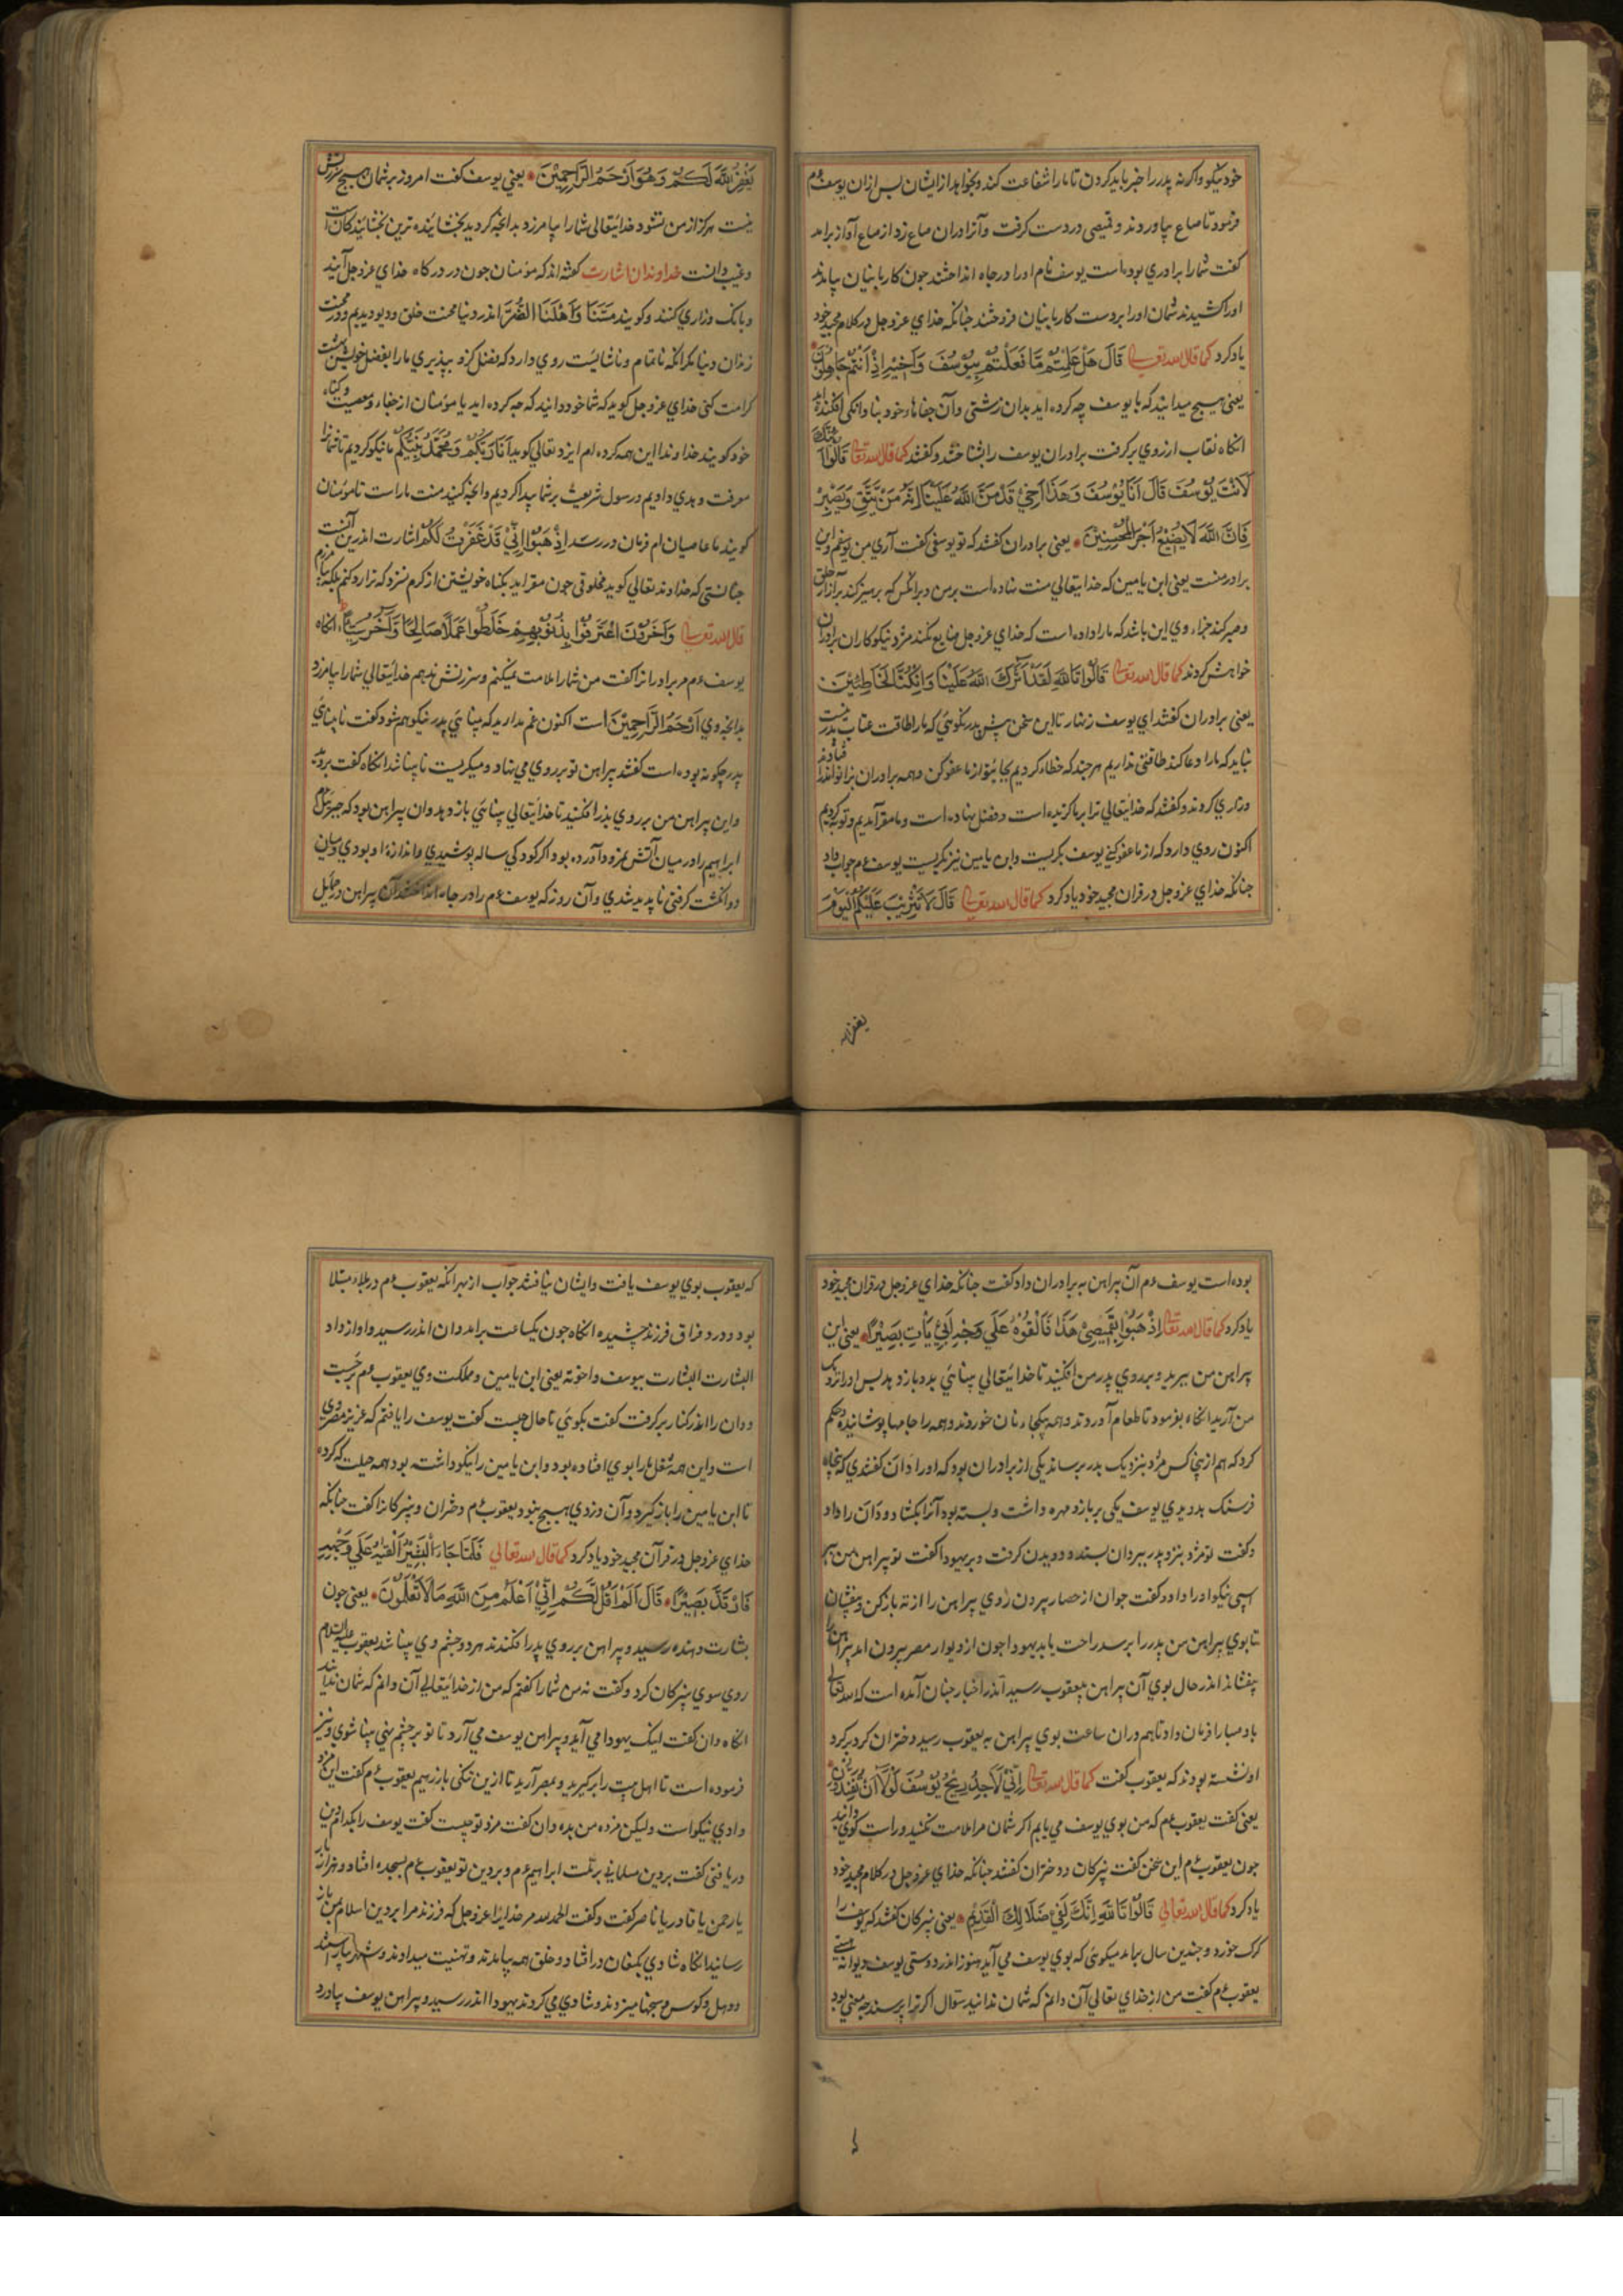 خود نیکو و اگر نه پدر را خبر باید کردن تا ما را شفاعت کند و بخواهد از ایشان پس ازان یوسف عم
فرمود تا صاع بیاوردند و قمیصی در دست گرفت و آنرا دران صاع زد از صاع آواز برامد
گفت شما را برادری بوده است یوسف نام او را در چاه انداختند چون کاربانیان بیامدند
او را کشیدند شمان او را بر دست کاربانیان فروختند چنانکه خدای عزوجل در کلام مجید خود
یاد کرد کما قال الله تعالی قَالَ هَلْ عَلِمْتُمْ مَّا فَعَلْتُمْ بِیُوسُفَ وَاَخِیْهِ اِذْ اَنْتُمْ جَاهِلُوْنَ
یعنی هیچ میدانید که با یوسف چه کرده اید بدان زشتی و آن جفاها و خود بنادانکی افکنده اید
انکاه نقاب از روی برگرفت برادران یوسف را بشناختند و گفتند کما قال الله تعالی قَالُوْا اَئِنَّكَ
لَاَنْتَ یُوْسُفَ قَالَ اَنَا یُوْسُفَ وَهٰذَا اَخِیْ قَدْ مَنَّ اللهُ عَلَیْنَا اِنَّهٗ مَنْ یَتَّقِ وَیَصْبِرْ
فَاِنَّ اللهَ لَا یُضِیْعُ اَجْرَ الْمُحْسِنِیْنَ یعنی برادران گفتند که تو یوسفی گفت آری من یوسفم و این
برادر منست یعنی ابن یامین که خدایتعالی منت نهاده است بر من و بر انکس که پرهیز کند بر آزار خلق
و صبر کند جزاء وی این باشد که ما را داده است که خدای عزوجل ضایع نکند مزد نیکوکاران برادران
خواهش کردند کما قال الله تعالی قَالُوْا تَاللهِ لَقَدْ اٰثَرَكَ اللهُ عَلَیْنَا وَاِنْ كُنَّا لَخَاطِئِیْنَ
یعنی برادران گفتند ای یوسف زنهار تا این سخن پیش پدر نگوئی که ما را طاقت عتاب پدر نیست
نباید که ما را دعا کند طاقتی نداریم هر چند که خطا کردیم بجای تو از ما عفو کن و همه برادران بزانو اندر افتادند
و زاری کردند و گفتند که خدایتعالی ترا بر ما گزیده است و فضل نهاده است و ما مقر آمدیم و توبه کردیم
اکنون روی دارد که از ما عفو کنی یوسف بگریست و ابن یامین نیز بگریست یوسف عم جواب داد
چنانکه خدای عزوجل در قران مجید خود یاد کرد کما قال الله تعالی قَالَ لَا تَثْرِیْبَ عَلَیْكُمُ الْیَوْمَ
یغفر الله
یَغْفِرُ اللهُ لَكُمْ وَهُوَ اَرْحَمُ الرَّاحِمِیْنَ یعنی یوسف گفت امروز بر شمان هیچ سرزنش
نیست هرگز از من نشنود خدایتعالی شما را بیامرزد بدانچه کردید بخشاینده ترین بخشایندکان است
و غیب دانست خداوندان اشارت گفته اند که مؤمنان چون در درگاه خدای عزوجل آیند
و بانک و زاری کنند و گویند مَسَّنَا وَاَهْلَنَا الضُّرُّ اندر دنیا محنت خلق و دیو دیدیم و
زندان دنیا مکر انکه ناتمام و ناشایست روی دارد که بفضل بپذیری ما را بفضل خویش بهشت
کرامت کنی خدای عزوجل گوید که شما خود دانید که چه کرده اید یا مؤمنان از جفاء و معصیت و گناه
خود گویند خداوندا این همه کرده ام ایزد تعالی گوید اَنَا رَبُّكُمْ وَمُحَمَّدٌ نَبِیُّكُمْ ما نیکو کردیم تا شما را
معرفت و هدی دادیم و رسول شریعت بر شما پیدا کردیم و انچه کنید منت ما راست تا مؤمنان
گویند ما عاصیان ام فرمان در رسد اِذْهَبُوْا اِنِّیْ قَدْ غَفَرْتُ لَكُمْ اشارت اندرین آنست
چنانستی که خداوند تعالی گوید مخلوقی چون مقر اید بگناه خویشتن از کرم نسزد که ترا رد کنم بلکه بیامرزم
قال الله تعالی وَاٰخَرُوْنَ اعْتَرَفُوْا بِذُنُوْبِهِمْ خَلَطُوْا عَمَلًا صَالِحًا وَّاٰخَرَ سَیِّئًا انکاه
یوسف عم مر برادرانرا گفت من شما را ملامت نمیکنم و سرزنش ندهم خدایتعالی شما را بیامرزد
بدانچه وی اَرْحَمُ الرَّاحِمِیْنَ است اکنون غم مدارید که بینائی پدر نیکو هم شود گفت نابینای
پدر چگونه بوده است گفتند پیراهن تو بر روی می نهاد و میگریست تا بینا شد انکاه گفت بروید
و این پیراهن من بر روی پدر افکنید تا خدایتعالی بینائی باز دهد وان پیراهن بود که جبرئیل عم
ابراهیم را در میان آتش نمرود آورده بود اگر کودکی ساله پوشیدی و اندازهٔ او بودی و میان
دو انگشت گرفتی ناپدید شدی و آن روز که یوسف عم را در چاه انداختند آن پیراهن در
بوده است یوسف عم آن پیراهن به برادران داد و گفت چنانکه خدای عزوجل در قران مجید خود
یاد کرد کما قال الله تعالی اِذْهَبُوْا بِقَمِیْصِیْ هٰذَا فَاَلْقُوْهُ عَلٰی وَجْهِ اَبِیْ یَاْتِ بَصِیْرًا یعنی این
پیراهن من ببرید و بر روی پدر من افکنید تا خدایتعالی بینائی بدو باز دهد پس او را نزدیک
من آرید انکاه بفرمود تا طعام آوردند و همه بیکجا نان خوردند و همه را جامها پوشانید و حکم
کرد که هم از اینجا کس مژد بنزدیک پدر برساند یکی از برادران بود که او را دان گفتندی که پنجاه
فرسنک بدویدی یوسف یکی بر بازو مهره داشت و بسته بود آنرا بکشاد و دان را داد
و گفت تو مژد بنزد پدر ببر دان بستد و دویدن گرفت و بر یهودا گفت تو پیراهن من ببر
اسپی نیکو او را داد و گفت چون از حصار بیرون روی پیراهن را از ته باز کن و بیفشان
تا بوی پیراهن من پدر را برسد راحت یابد یهودا چون از دیوار مصر بیرون امد پیراهن را
بیفشاند اندر حال بوی آن پیراهن بیعقوب رسید اندر اخبار چنان آمده است که الله تعالی
باد صبا را فرمان داد تا هم دران ساعت بوی پیراهن به یعقوب رسید و دختران گرد بر گرد
او نشسته بودند که یعقوب گفت کما قال الله تعالی اِنِّیْ لَاَجِدُ رِیْحَ یُوْسُفَ لَوْلَا اَنْ تُفَنِّدُوْنِ
یعنی گفت یعقوب عم که من بوی یوسف می یابم اگر شمان مرا ملامت نکنید و راست گوی دانید
چون یعقوب عم این سخن گفت نبیرکان و دختران گفتند چنانکه خدای عزوجل در کلام مجید خود
یاد کرد کما قال الله تعالی قَالُوْا تَاللهِ اِنَّكَ لَفِیْ ضَلَالِكَ الْقَدِیْمِ یعنی نبیرکان گفتند که یوسف را
گرک خورد و چندین سال برامد میگوئی که بوی یوسف می آید هنوز اندر دوستی یوسف دیوانه هستی
یعقوب عم گفت من از خدای تعالی آن دانم که شمان ندانید سؤال اگر ترا پرسند چه معنی بود
که یعقوب بوی یوسف یافت و ایشان نیافتند جواب از بهر انکه یعقوب عم در بلا مبتلا
بود و درد فراق فرزند چشیده انکاه چون یکساعت برامد دان اندر رسید و اواز داد
البشارت البشارت بیوسف و اخوته یعنی ابن یامین و مملکت وی یعقوب عم برجست
و دان را اندر کنار برگرفت گفت بگوئی تا حال چیست گفت یوسف را یافتم که عزیز مصر وی
است و این همه شغل ها را بوی افتاده بود و ابن یامین را نیکو داشته بود همه حیلت کرده
تا ابن یامین را باز گیرد و آن دزدی هیچ نبود یعقوب عم دختران و نبیرکانرا گفت چنانکه
خدای عزوجل در قرآن مجید خود یاد کرد کما قال الله تعالی فَلَمَّا جَاءَ الْبَشِیْرُ اَلْقٰیهُ عَلٰی وَجْهِهِ
فَارْتَدَّ بَصِیْرًا قَالَ اَلَمْ اَقُلْ لَّكُمْ اِنِّیْ اَعْلَمُ مِنَ اللهِ مَا لَا تَعْلَمُوْنَ یعنی چون
بشارت دهنده رسید و پیراهن بر روی پدر افکندند هر دو چشم وی بینا شد یعقوب علیه السلام
روی سوی نبیرکان کرد و گفت نه من شما را گفتم که من از خدایتعالی آن دانم که شمان ندانید
انکاه دان گفت اینک یهودا می آید و پیراهن یوسف می آرد تا تو بر چشم نهی بینا شوی و نیز
فرموده است تا اهل بیت را برگیرید و بمصر آرید تا ازین تنکی باز رهیم یعقوب عم گفت این مژد
دادی نیکو است ولیکن مژده من بده دان گفت مزد تو چیست گفت یوسف را بکدام دین
دریافتی گفت بر دین مسلمانی بر ملت ابراهیم عم و بر دین تو یعقوب عم بسجده افتاد و هزار بار
یا رحمن یا قادر یا ناصر گفت و گفت الحمد لله مر خدایرا عزوجل که فرزند مرا بر دین اسلام بمن باز
رسانید انکاه شادی بکنعان در افتاد و خلق همه بیامدند و تهنیت میدادند و شهر بیاراستند
و دهل و کوس و سنجها میزدند و شادی می کردند یهودا اندر رسید و پیراهن یوسف بیاورد